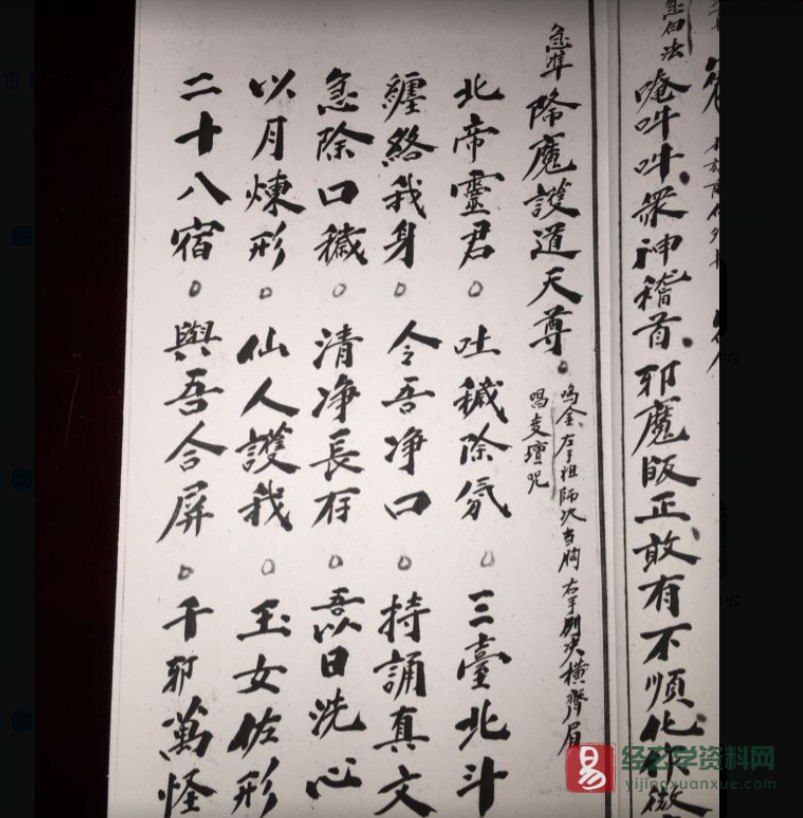 急白法
唵吽吽衆神稽首邪魔皈正敢有不順化作微
急準降魔護道天尊
鸣金左手祖師決当胸右手劍決横齊眉
唱变壇咒
北帝靈君 吐穢除氛 三臺北斗
纏絡我身 令吾净口 持誦真文
急除口穢 清净長存 吾以日洗心
以月煉形 仙人護我 玉女佐形
二十八宿 與吾合屏 千邪萬怪
易
经学资料网
yijingxuanxue.com